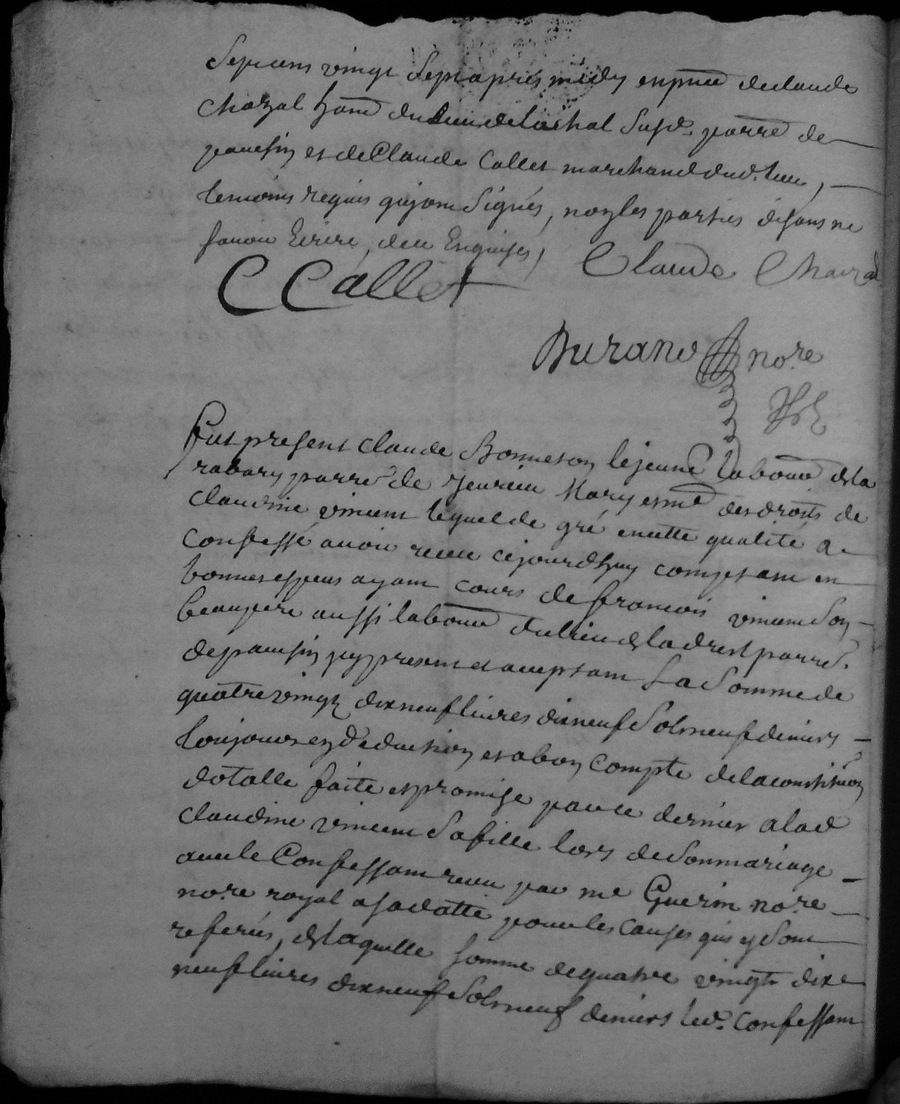 sept cens vingt sept apres midy en pnce de claude
Chazal habt du lieu de Lachal susd. parre de
pourchin et de Claude Callet marchand dud. lieu,
temoins requis quy ont signés, non les parties disans ne
savoir Ecrire, de ce Enquises,
CCallet Claude Chazal
Durand nore
Fut present Claude Bonneton lejeune labour de la
parre de mary et me des droits de
Claudine vincent lequel de gré en cette qualité a
Confessé avoir receu cejourdhuy comptant en
bonnes especes ayant cours de francois vincent son
beaupere aussi labour du lieu de parre
de icy present et aceptant La Somme de
quatre vingt dix neuf livres dix neuf Sols neuf deniers
toujours en deduction et a bon Compte de la constitution
dotalle faite et promise par ce dernier a lad
Claudine vincent Sa fille lors de Son mariage
avec le Confessant receu par me Guerin nore
nore royal a sa datte pour les Causes qui y Sont
referés, de laquelle Somme de quatre vingt dixe
neuf livres dix neuf Sols neuf deniers led. Confessant